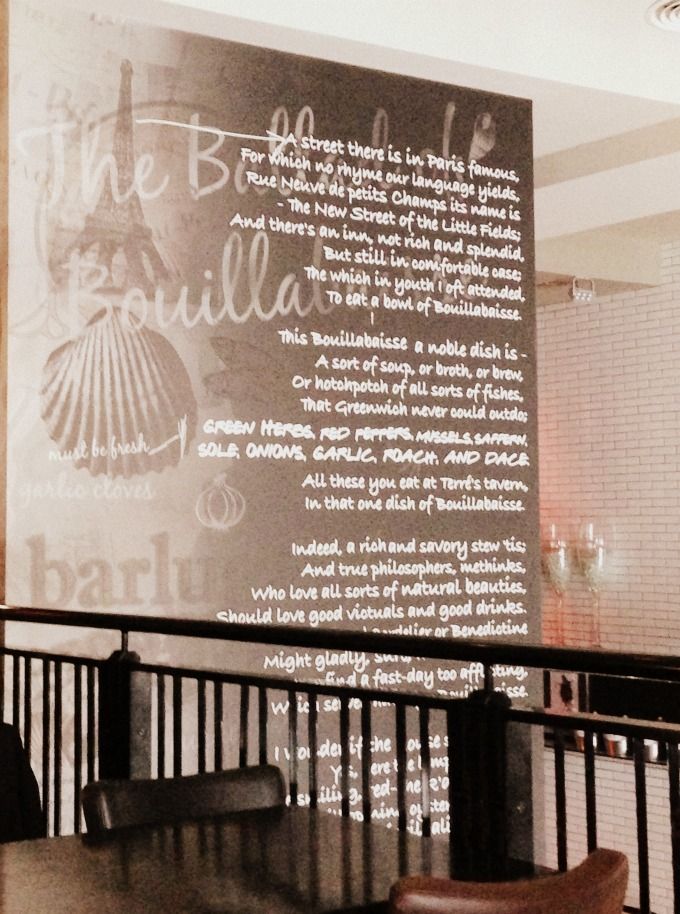 The Ballad of
Bouillabaisse
A street there is in Paris famous,
For which no rhyme our language yields,
Rue Neuve de petits Champs its name is
- The New Street of the Little Fields;
And there's an inn, not rich and splendid,
But still in comfortable ease;
The which in youth I oft attended,
To eat a bowl of Bouillabaisse.
This Bouillabaisse a noble dish is -
A sort of soup, or broth, or brew,
Or hotchpotch of all sorts of fishes,
That Greenwich never could outdo;
GREEN HERBS, RED PEPPERS, MUSSELS, SAFFERN,
SOLE, ONIONS, GARLIC, ROACH, AND DACE
must be fresh
garlic cloves
All these you eat at Terré's tavern,
In that one dish of Bouillabaisse.
Indeed, a rich and savory stew 'tis;
And true philosophers, methinks,
Who love all sorts of natural beauties,
Should love good victuals and good drinks.
barlu
or Benedictine
Might gladly,
find a fast-day too
I wonder if the